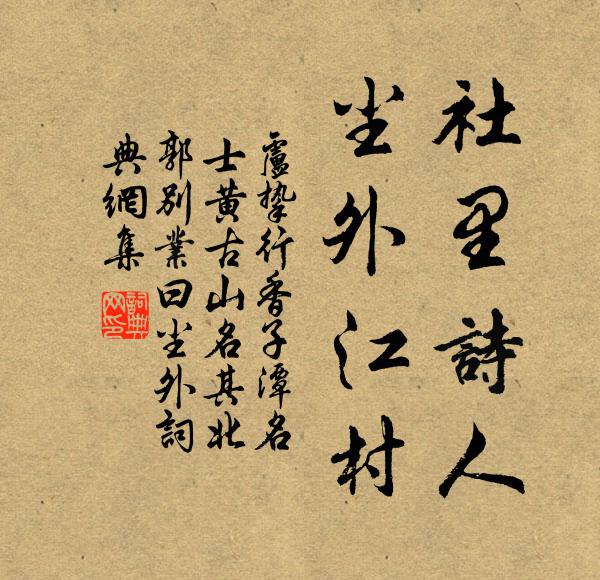 社里詩人
尘外江村
盧摯行香子潭名
士黄古山名其北
郭别業曰尘外詞
典網集
詞典
网印